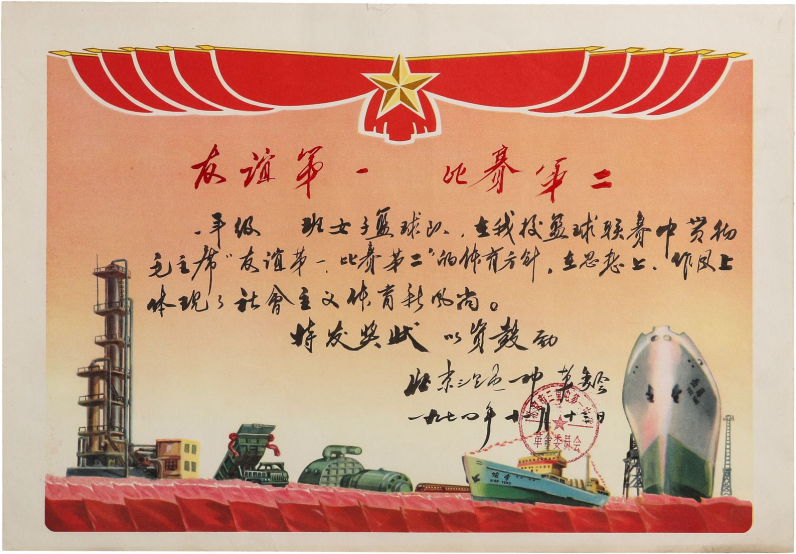 友谊第一 比赛第二
一年级 班女子篮球队，在我校篮球联赛中贯彻
毛主席“友谊第一，比赛第二”的体育方针，在思想上、作风上
体现了社會主义体育新风尚。
特发奖状 以资鼓励
北京三里屯一中 革委会
一九七四年十一月十 日
革命委员会